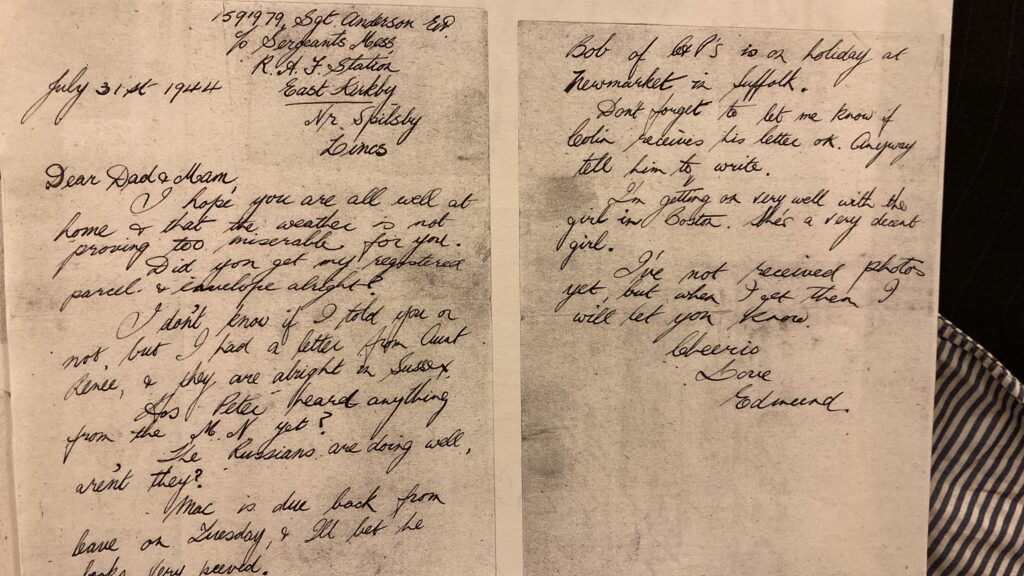 1591979, Sgt Anderson E.P.
c/o Sergeants Mess
R.A.F. Station
East Kirkby
Nr Spilsby
Lincs
July 31st 1944
Dear Dad & Mam,
I hope you are all well at
home & that the weather is not
proving too miserable for you.
Did you get my registered
parcel & envelope alright?
I don't know if I told you or
not, but I had a letter from Aunt
Renee, & they are alright in Sussex.
Has Peter heard anything
from the M.N. yet?
The Russians are doing well,
aren't they?
Mac is due back from
leave on Tuesday, & I'll bet he
looks very peeved.
Bob of C&P's is on holiday at
Newmarket in Suffolk.
Dont forget to let me know if
Colin receives his letter ok. Anyway
tell him to write.
I'm getting on very well with the
girl in Boston. She's a very decent
girl.
I've not received photos
yet, but when I get them I
will let you know.
Cheerio
Love
Edmund.